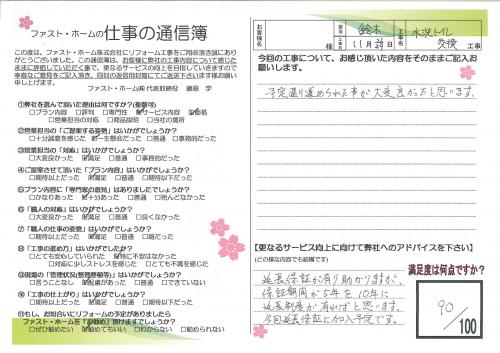 ファスト・ホームの仕事の通信簿
この度は、ファスト・ホーム株式会社にリフォーム工事をご用命頂き誠にあり
がとうございました。この通信簿は、お客様に弊社の工事内容について感じた
ままに評価していただく事で、更なるサービスの向上を目指していきますので
率直なご意見をご記入頂き、同封の返信用封筒にてご返送下さいます様お願い
申し上げます。
ファスト・ホーム㈱ 代表取締役 藤原 学
①弊社を選んで頂いた理由は何ですか?(複数可)
□プラン内容 □評判 □専門性 □サービス内容 □価格
□営業担当の対応 □商品説明 □当社の雰囲気
②営業担当の「ご提案する姿勢」はいかがでしょうか?
□十分誠意を感じた □一生懸命だった □普通 □事務的だった
③営業担当の「対応」はいかがでしょうか?
□大変良かった □満足 □普通 □事務的だった
④ご提案させて頂いた「プラン内容」はいかがでしょうか?
□期待以上だった □満足 □期待通り □期待以下だった
⑤プラン内容に「専門家の意見」はありましたでしょうか?
□かなりあった □十分あった □普通 □殆どなかった
⑥「職人の対応」はいかがでしょうか?
□大変良かった □満足 □普通 □良くなかった
⑦「職人の仕事の姿勢」はいかがでしょうか?
□期待以上だった □満足 □普通 □雑だった
⑧「工事の進め方」はいかがでしたか?
□とても安心していられた □特に不安はなかった
□対応に少しストレスを感じた □とても不満を感じた
⑨現場の「管理状況(整理整頓等)」はいかがでしょうか?
□言うことなし □配慮があった □普通 □いまいち
⑩「工事の仕上がり」はいかがでしょうか?
□期待以上だった □満足 □普通 □いまいち
⑪もし、お知合いにリフォームの予定がありましたら
ファスト・ホームを「お勧め」頂けますでしょうか?
□ぜひ勧めたい □勧めてもいい □わからない □勧められない
お客様名
様
鈴木
11月30日
工事名
水洗トイレ
交換
工事
今回の工事について、お感じ頂いた内容をそのままご記入お
願いします。
予定通り進められた事が大変良かったと思います。
【更なるサービス向上に向けて弊社へのアドバイスを下さい】
(どの様な内容でも結構です)
延長保証が有り助かりますが、
保証期間が5年を10年に
延長制度が有ればと思います。
今回延長保証に加入予定です。
満足度は何点ですか?
90
/100